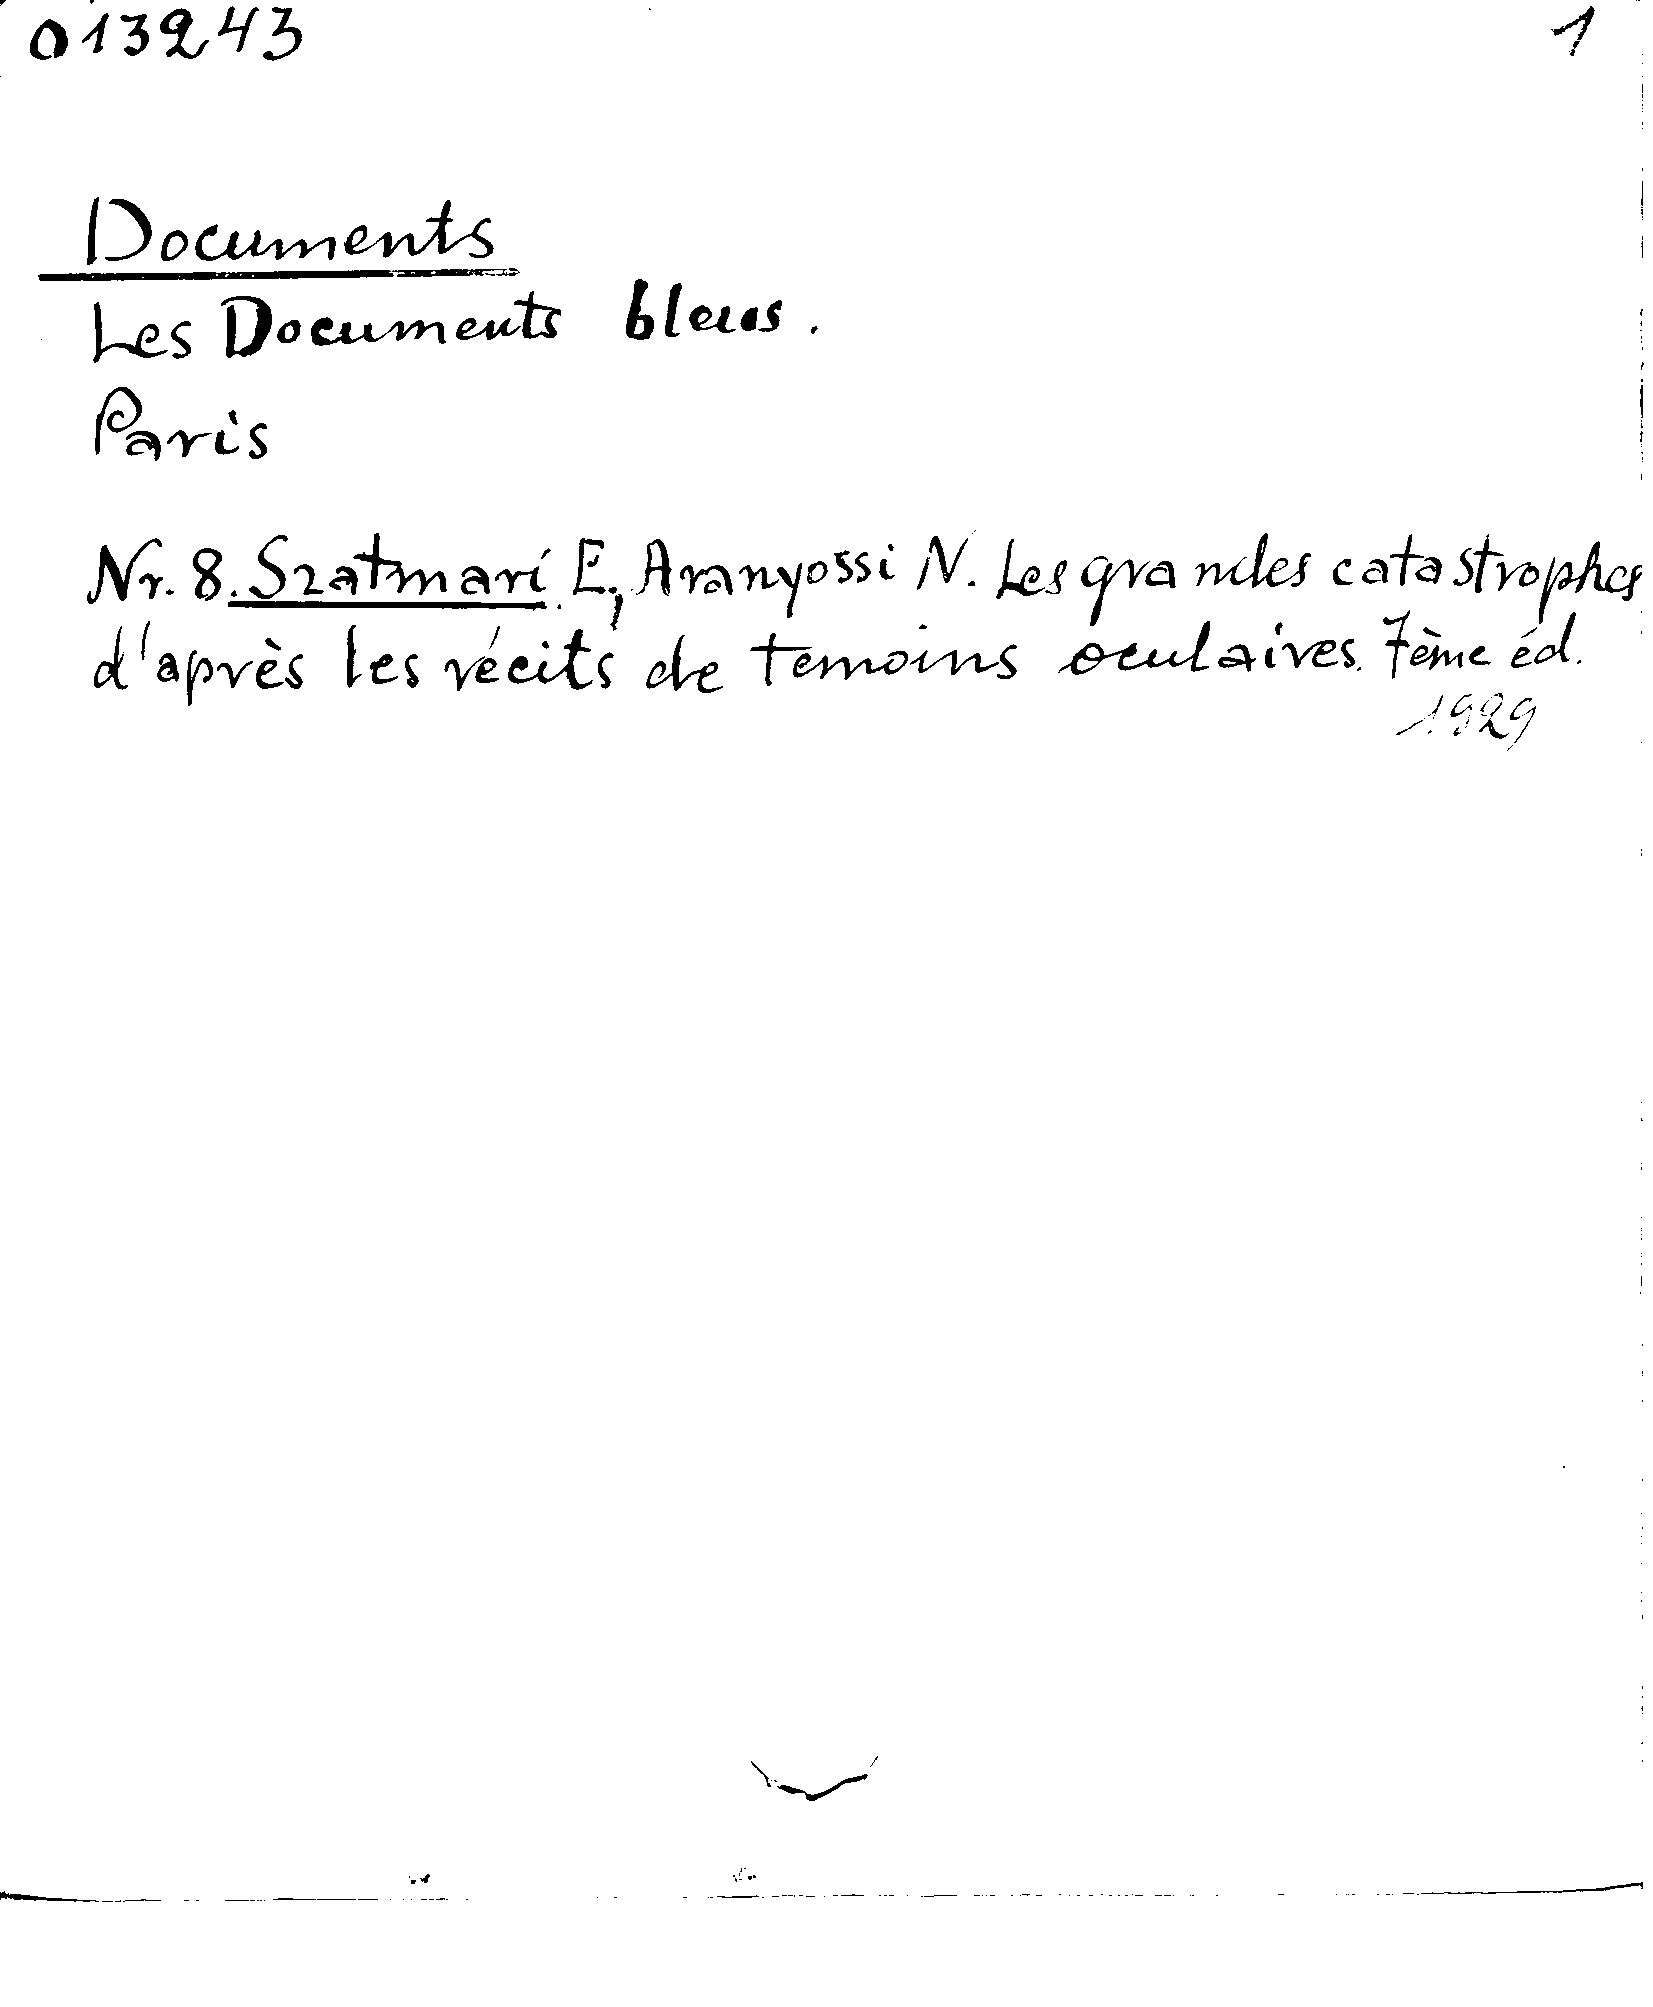 013243 1
Documents
Les Documents bleus.
Paris
Nr. 8. Szatmari E., Aranyossi N. Les grandes catastrophes
d'après les récits de temoins oculaires. 7ème éd.
1929